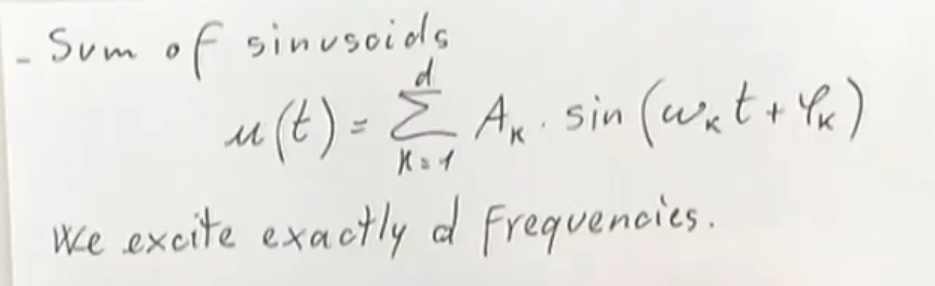 - Sum of sinusoids
u(t) = \sum_{k=1}^{d} A_k · sin(ω_k t + φ_k)
We excite exactly d frequencies.